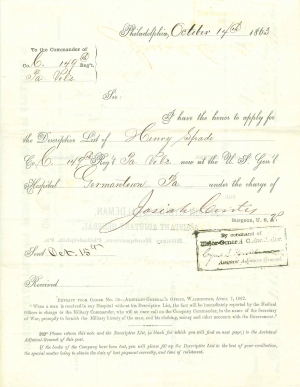 Philadelphia, October 14th 1863
To the Commander of
Co. C. 149th Reg't.
Pa Vols.
Sir:
I have the honor to apply for
the Descriptive List of Henry Spade
Co C. 149th Reg't Pa Vols. now at the U. S. Gen'l
Hospital Germantown Pa under the charge of
Josiah Curtis
Surgeon, U. S.
By command of
Assistant Adjutant General
Send Oct. 15th
Received
Extract from Order No. Adjutant-General's Office, Washington, April 7, 1862.
"When a man is received in any Hospital without his Descriptive List, the fact will be immediately reported by the Medical
Officer in charge to the Military Commander, who will at once call on the Company Commander, in the name of the Secretary of
War, promptly to furnish the Military history of the man, and his clothing, money and other accounts with the Government."
Please return this note and the Descriptive List, in blank for which you will find on next page, to the Assistant
Adjutant-General of this post.
If the books of the Company have been lost, you will please fill up the Descriptive List to the best of your recollection,
the special matter being to obtain the date of last payment correctly, and time of enlistment.